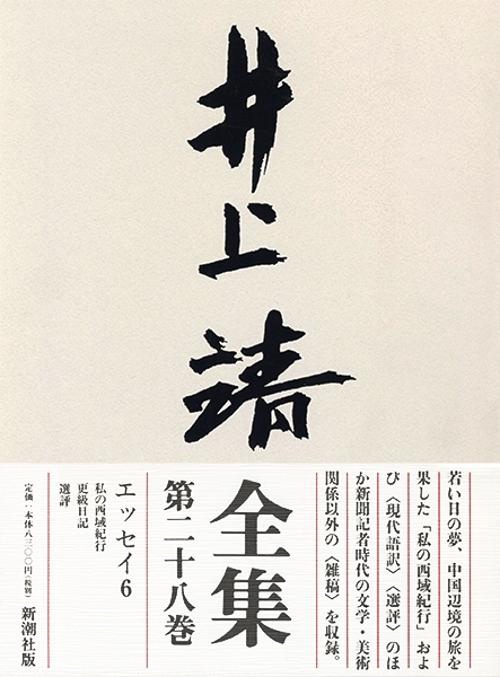 井上靖
若い日の夢、中国辺境の旅を
果した「私の西域紀行」およ
び〈現代語訳〉〈選評〉のほ
か新聞記者時代の文学・美術
関係以外の〈雑稿〉を収録。
全集
第二十八巻
エッセイ6
私の西域紀行
更級日記
選評
定価：本体八三〇〇円(税別)
新潮社版